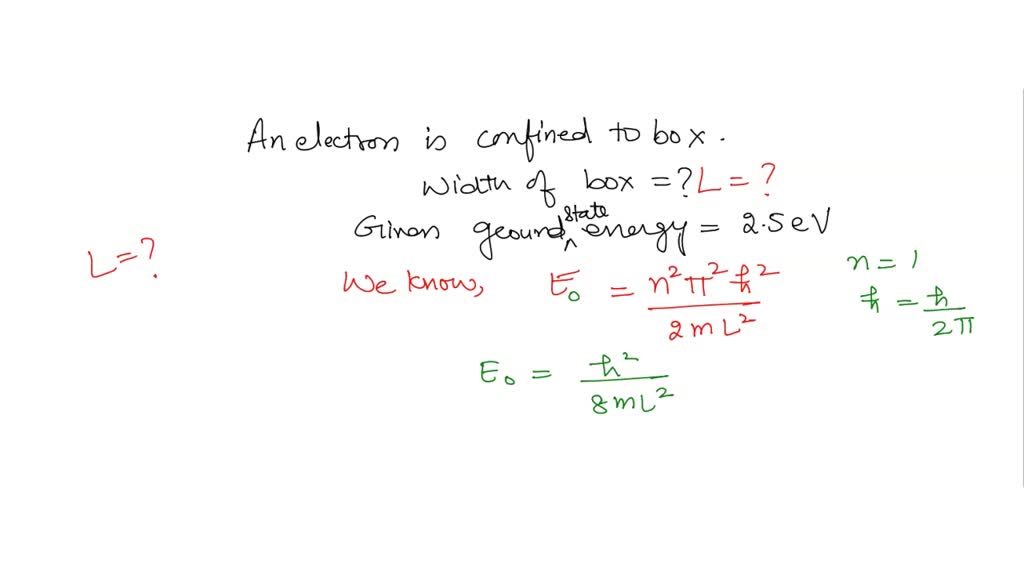 An electron is confined to box.
Width of box = ? L = ?
Given ground state energy = 2.5 eV
L = ?
We know, E₀ = n²π²ħ² / 2mL²
n = 1
ħ = ħ / 2π
E₀ = ħ² / 8mL²